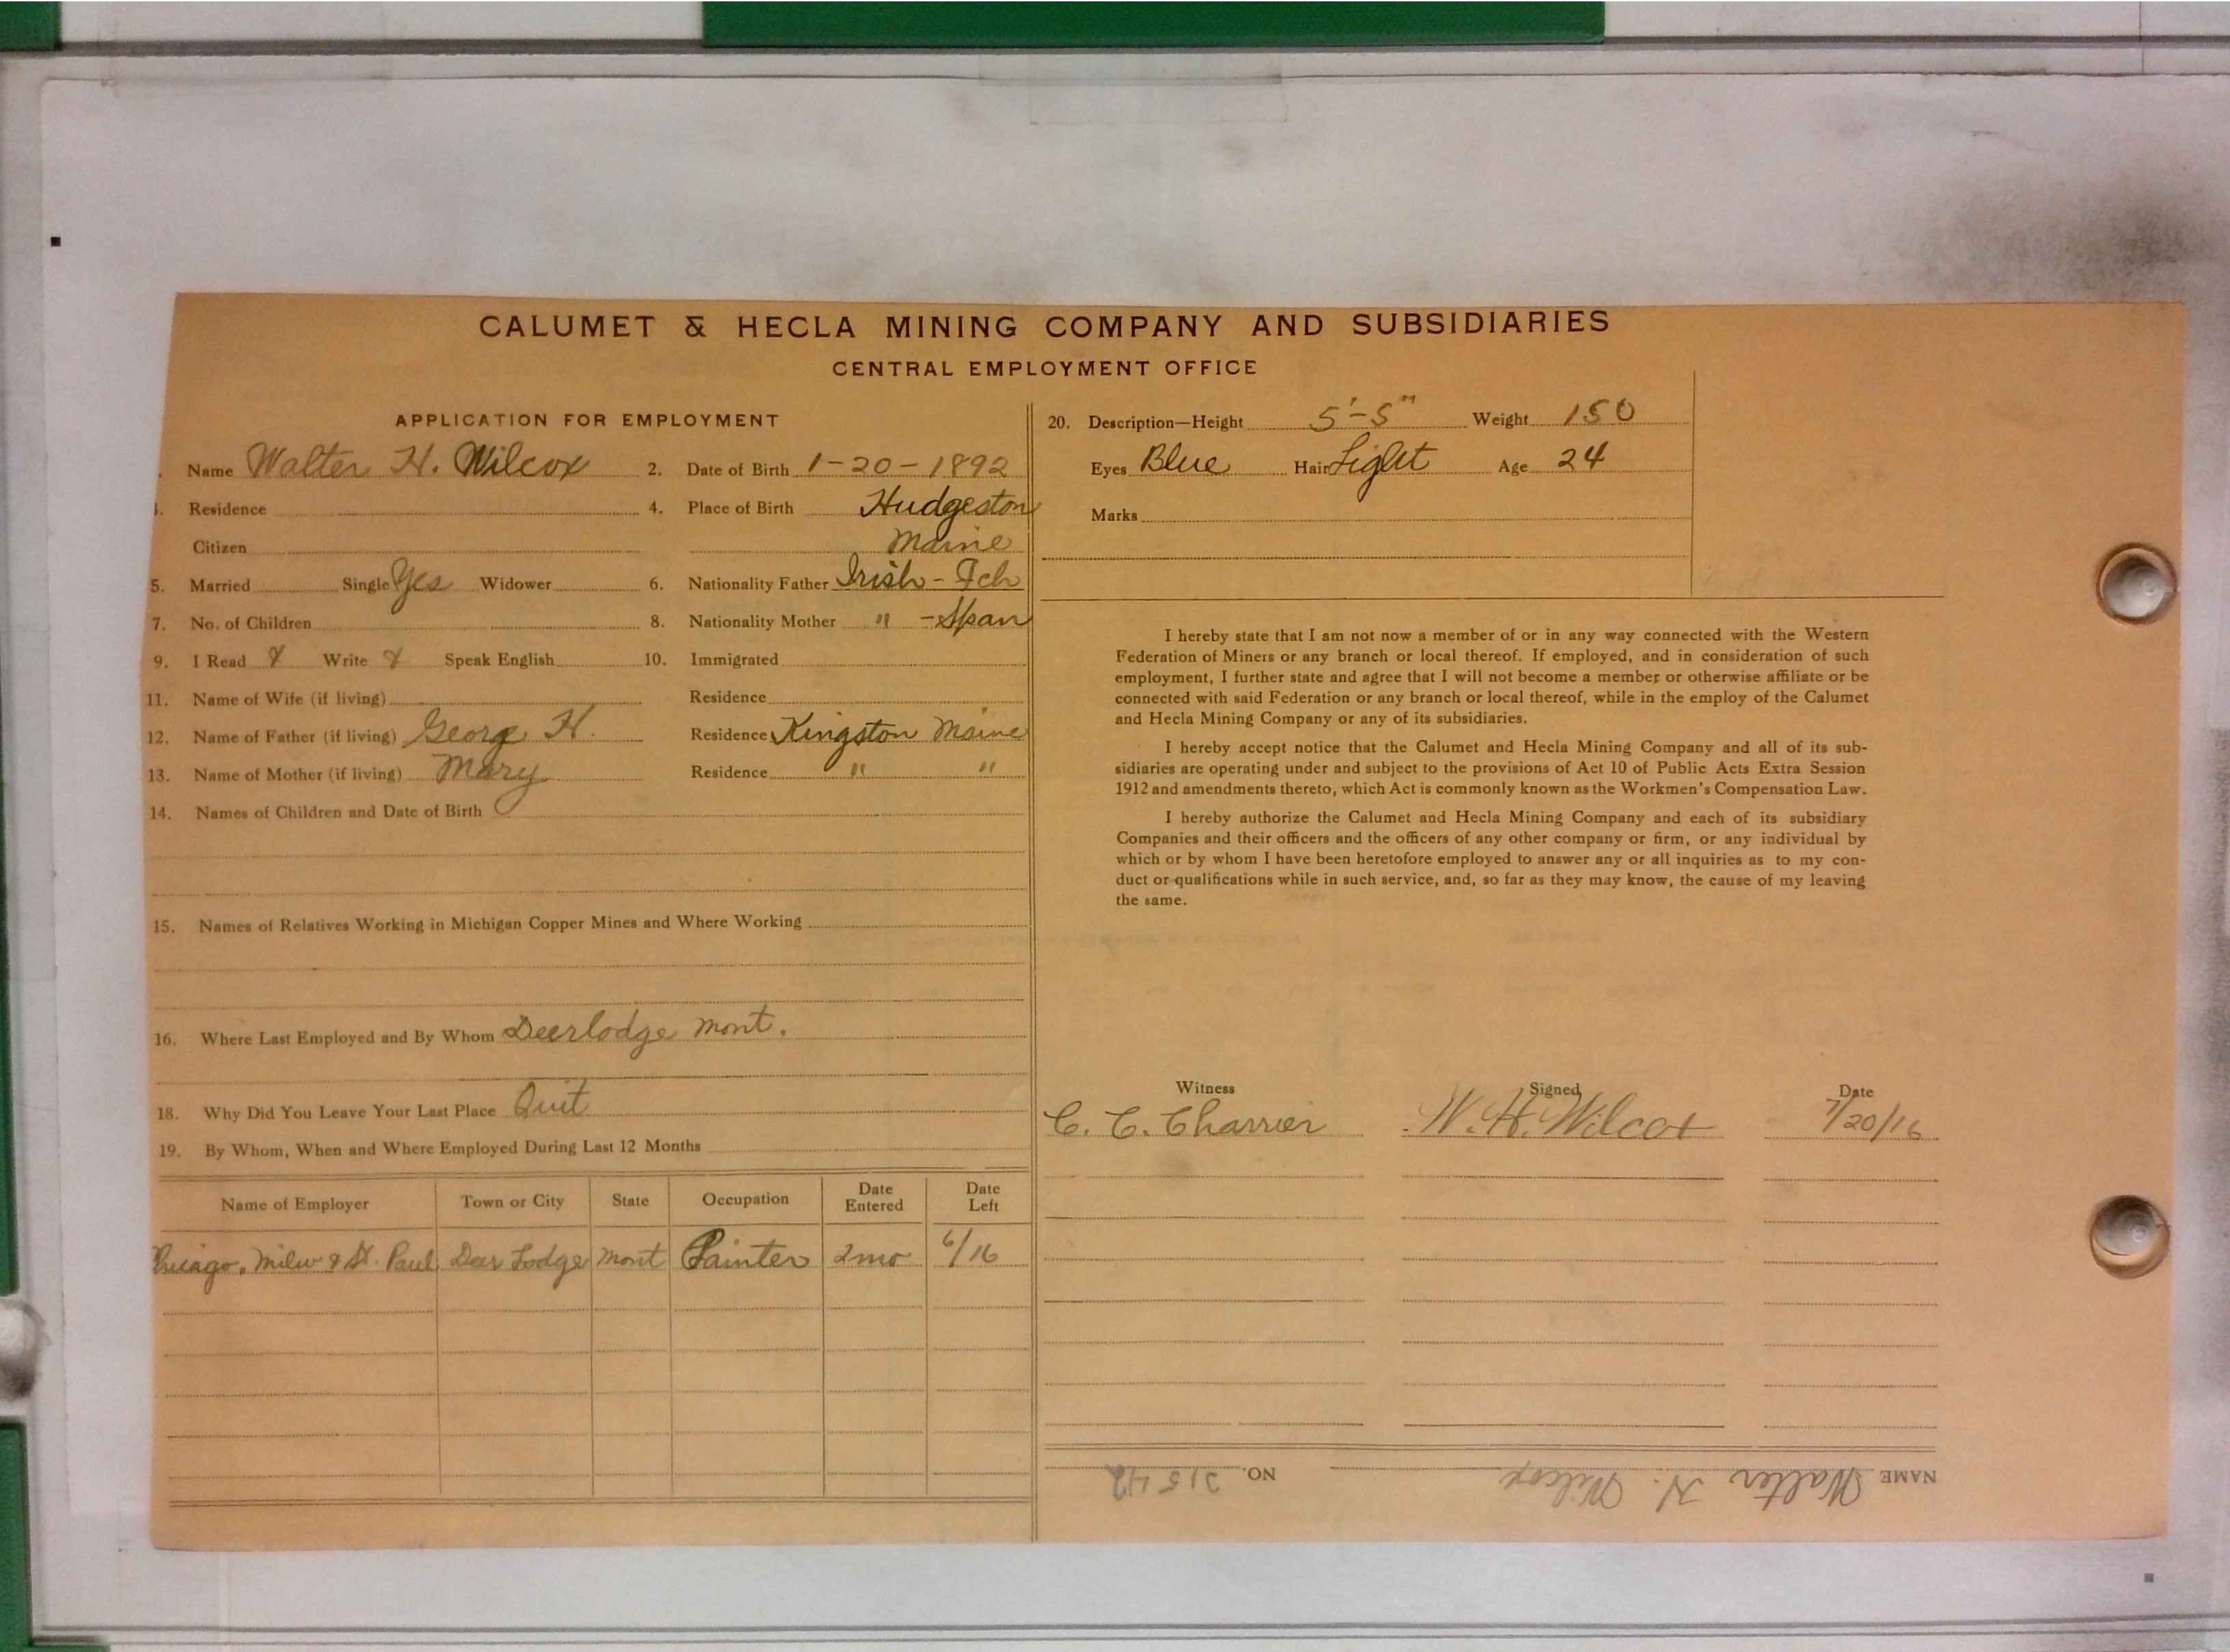 CALUMET & HECLA MINING COMPANY AND SUBSIDIARIES
CENTRAL EMPLOYMENT OFFICE
APPLICATION FOR EMPLOYMENT
Name Walter H. Wilcox 2. Date of Birth 1-20-1892
Residence 4. Place of Birth Hudgeston
Citizen Maine
5. Married Single Yes Widower 6. Nationality Father Irish - Fch
7. No. of Children 8. Nationality Mother " - Span
9. I Read Write Speak English 10. Immigrated
11. Name of Wife (if living) Residence
12. Name of Father (if living) George H. Residence Kingston Maine
13. Name of Mother (if living) Mary Residence " "
14. Names of Children and Date of Birth
15. Names of Relatives Working in Michigan Copper Mines and Where Working
16. Where Last Employed and By Whom Deerlodge Mont.
18. Why Did You Leave Your Last Place Quit
19. By Whom, When and Where Employed During Last 12 Months
Name of Employer Town or City State Occupation Date Entered Date Left
Chicago, Milw & St. Paul Deer Lodge Mont Painter 2mo 6/16
20. Description—Height 5'-5" Weight 150
Eyes Blue Hair Light Age 24
Marks
I hereby state that I am not now a member of or in any way connected with the Western
Federation of Miners or any branch or local thereof. If employed, and in consideration of such
employment, I further state and agree that I will not become a member or otherwise affiliate or be
connected with said Federation or any branch or local thereof, while in the employ of the Calumet
and Hecla Mining Company or any of its subsidiaries.
I hereby accept notice that the Calumet and Hecla Mining Company and all of its sub-
sidiaries are operating under and subject to the provisions of Act 10 of Public Acts Extra Session
1912 and amendments thereto, which Act is commonly known as the Workmen's Compensation Law.
I hereby authorize the Calumet and Hecla Mining Company and each of its subsidiary
Companies and their officers and the officers of any other company or firm, or any individual by
which or by whom I have been heretofore employed to answer any or all inquiries as to my con-
duct or qualifications while in such service, and, so far as they may know, the cause of my leaving
the same.
Witness Signed Date
C. C. Charrier W. H. Wilcox 7/20/16
NAME Walter H. Wilcox NO. 21542